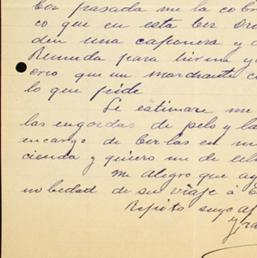 ber pasada me la cobr
co que en esta ber oro
den una caponera y d
Remuda para tierna y
oreo que un mardiante co
lo que pide
Si estimare me
las engordas de pelo y la
encargo de ber las en m
cienda y quiero me de ele
Me alegro que ay
no bedad de su viaje a
Repito suyo af